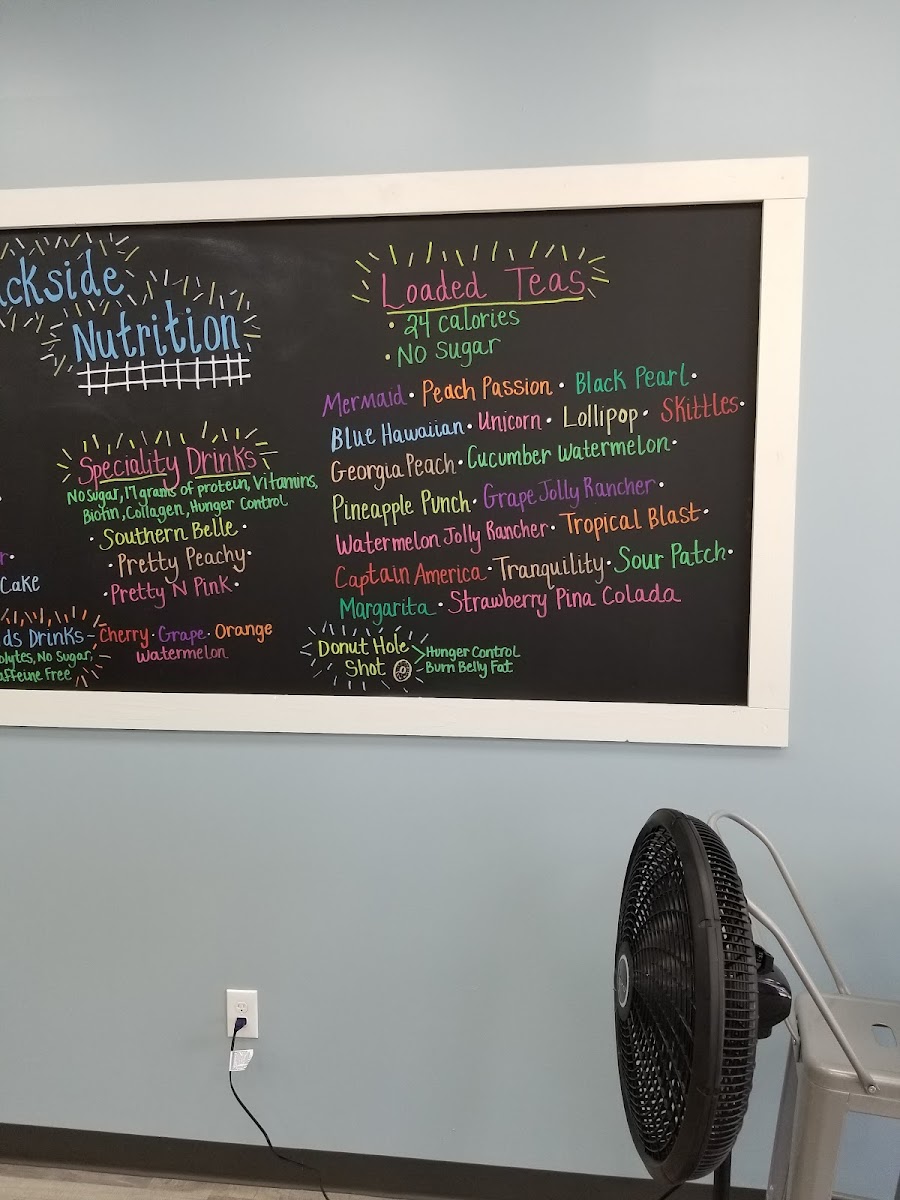 ckside
Nutrition
Speciality Drinks
No Sugar, 17 grams of protein, Vitamins,
Biotin, Collagen, Hunger Control
• Southern Belle •
• Pretty Peachy •
• Pretty N Pink •
r •
Cake
ds Drinks - Cherry • Grape • Orange
Watermelon
olytes, No Sugar,
affeine Free
Loaded Teas
• 24 calories
• No Sugar
Mermaid • Peach Passion • Black Pearl •
Blue Hawaiian • Unicorn • Lollipop • Skittles •
Georgia Peach • Cucumber Watermelon •
Pineapple Punch • Grape Jolly Rancher •
Watermelon Jolly Rancher • Tropical Blast •
Captain America • Tranquility • Sour Patch •
Margarita • Strawberry Pina Colada
Donut Hole
Shot
Hunger Control
Burn Belly Fat